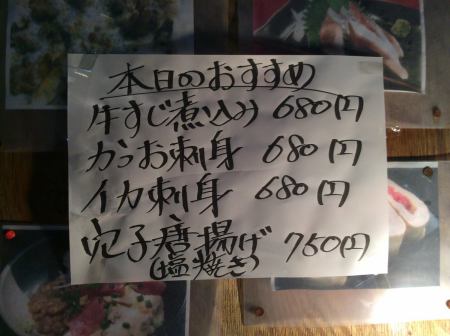 本日のおすすめ
牛すじ煮込み 680円
かつお刺身 680円
イカ刺身 680円
穴子唐揚げ 750円
(塩焼き)